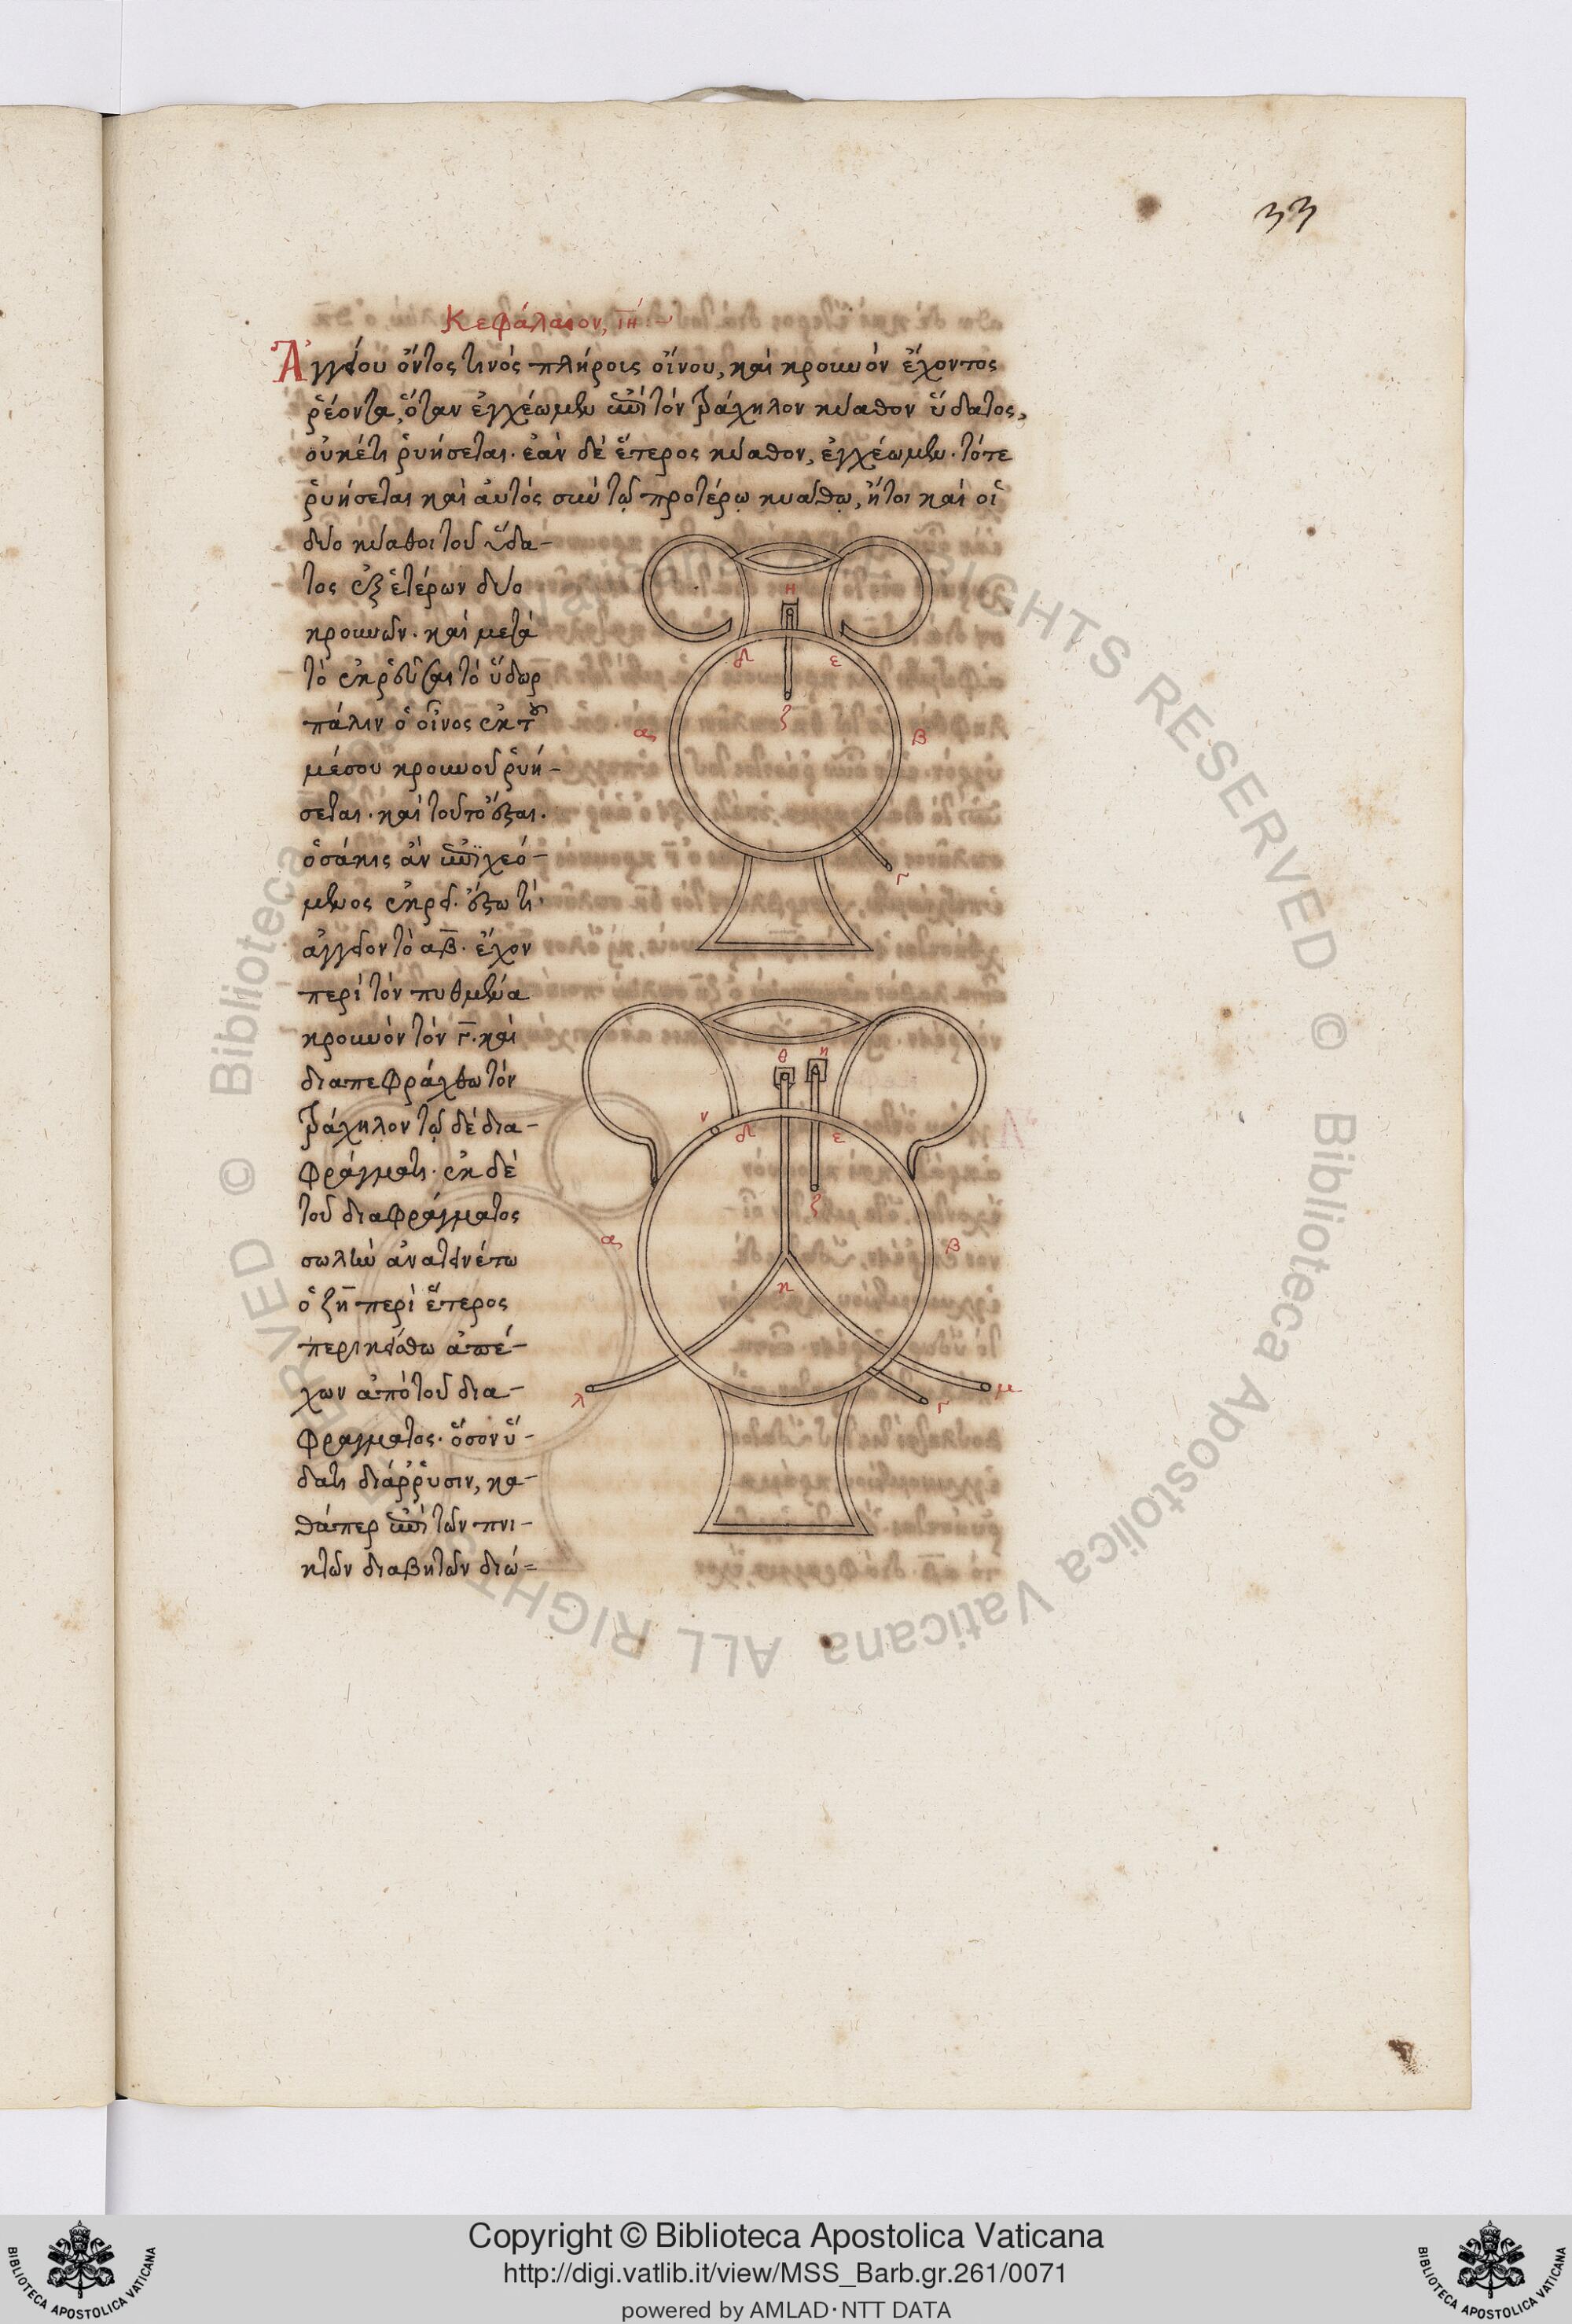 33
Κεφάλαιον, ιή :~
Ἀγγείου ὄντος τινὸς πλήροις οἴνου, καὶ κρουνὸν ἔχοντος
ῥέοντα, ὅταν ἐγχέωμεν ἐπὶ τὸν τράχηλον κύαθον ὕδατος,
οὐκέτι ῥυήσεται· ἐὰν δὲ ἕτερος κύαθον, ἐγχέωμεν· τότε
ῥυήσεται καὶ αὐτὸς σὺν τῷ προτέρῳ κυάθῳ, ἤτοι καὶ οἱ
δύο κύαθοι τοῦ ὕδα-
τος ἐξ ἑτέρων δύο
κρουνῶν· καὶ μετὰ
τὸ ἐκρεῦσαι τὸ ὕδωρ
πάλιν ὁ οἶνος ἐκ τοῦ
μέσου κρουνοῦ ῥυή-
σεται· καὶ τοῦτο ἔσται·
ὁσάκις ἂν ἐπιχεό-
μενος ἐκρεῖ· ἔστω τι
ἀγγεῖον τὸ αβ· ἔχον
περὶ τὸν πυθμένα
κρουνὸν τὸν γ· καὶ
διαπεφράχθω τὸν
τράχηλον τῷ δὲ δια-
φράγματι· ἐκ δὲ
τοῦ διαφράγματος
σωλὴν ἀνατεινέτω
ὁ ζη περὶ ἕτερος
περικείσθω ἀπέ-
χων ἀπὸ τοῦ δια-
φραγματος· ὅσον ὕ-
δατι διάρρυσιν, κα-
θάπερ ἐπὶ τῶν πνι-
κτῶν διαβητῶν διώ-
η
δ ε
ζ
α β
γ
θ η
ν
δ ε
ζ
α β
κ
λ γ μ
© Biblioteca Apostolica Vaticana ALL RIGHTS RESERVED
Copyright © Biblioteca Apostolica Vaticana
http://digi.vatlib.it/view/MSS_Barb.gr.261/0071
powered by AMLAD·NTT DATA
BIBLIOTECA APOSTOLICA VATICANA
BIBLIOTECA APOSTOLICA VATICANA